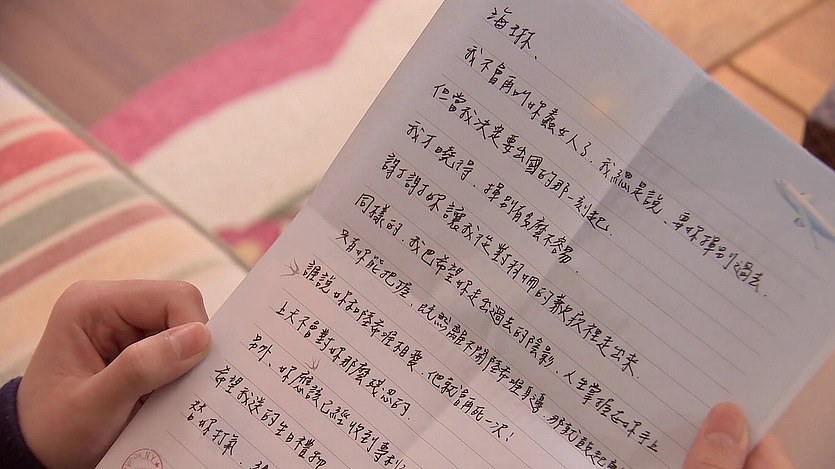 海琳、
我不會再叫妳蠢女人了、我總是說、要妳揮別過去、
但當我決定要出國的那一刻起、
我才曉得、揮別有多麼不容易、
謝謝妳讓我從對珊珊的歉疚裡走出來、
同樣的、我也希望妳走出過去的陰影、人生掌握在妳手上
只有妳能把握、既然離不開陸希唯身邊、那就鼓起
誰說妳和陸希唯相愛、他就會死一次!
上天不會對妳那麼殘忍的、
另外、妳應該已經收到專
希望我送的生日禮物
替妳打氣、